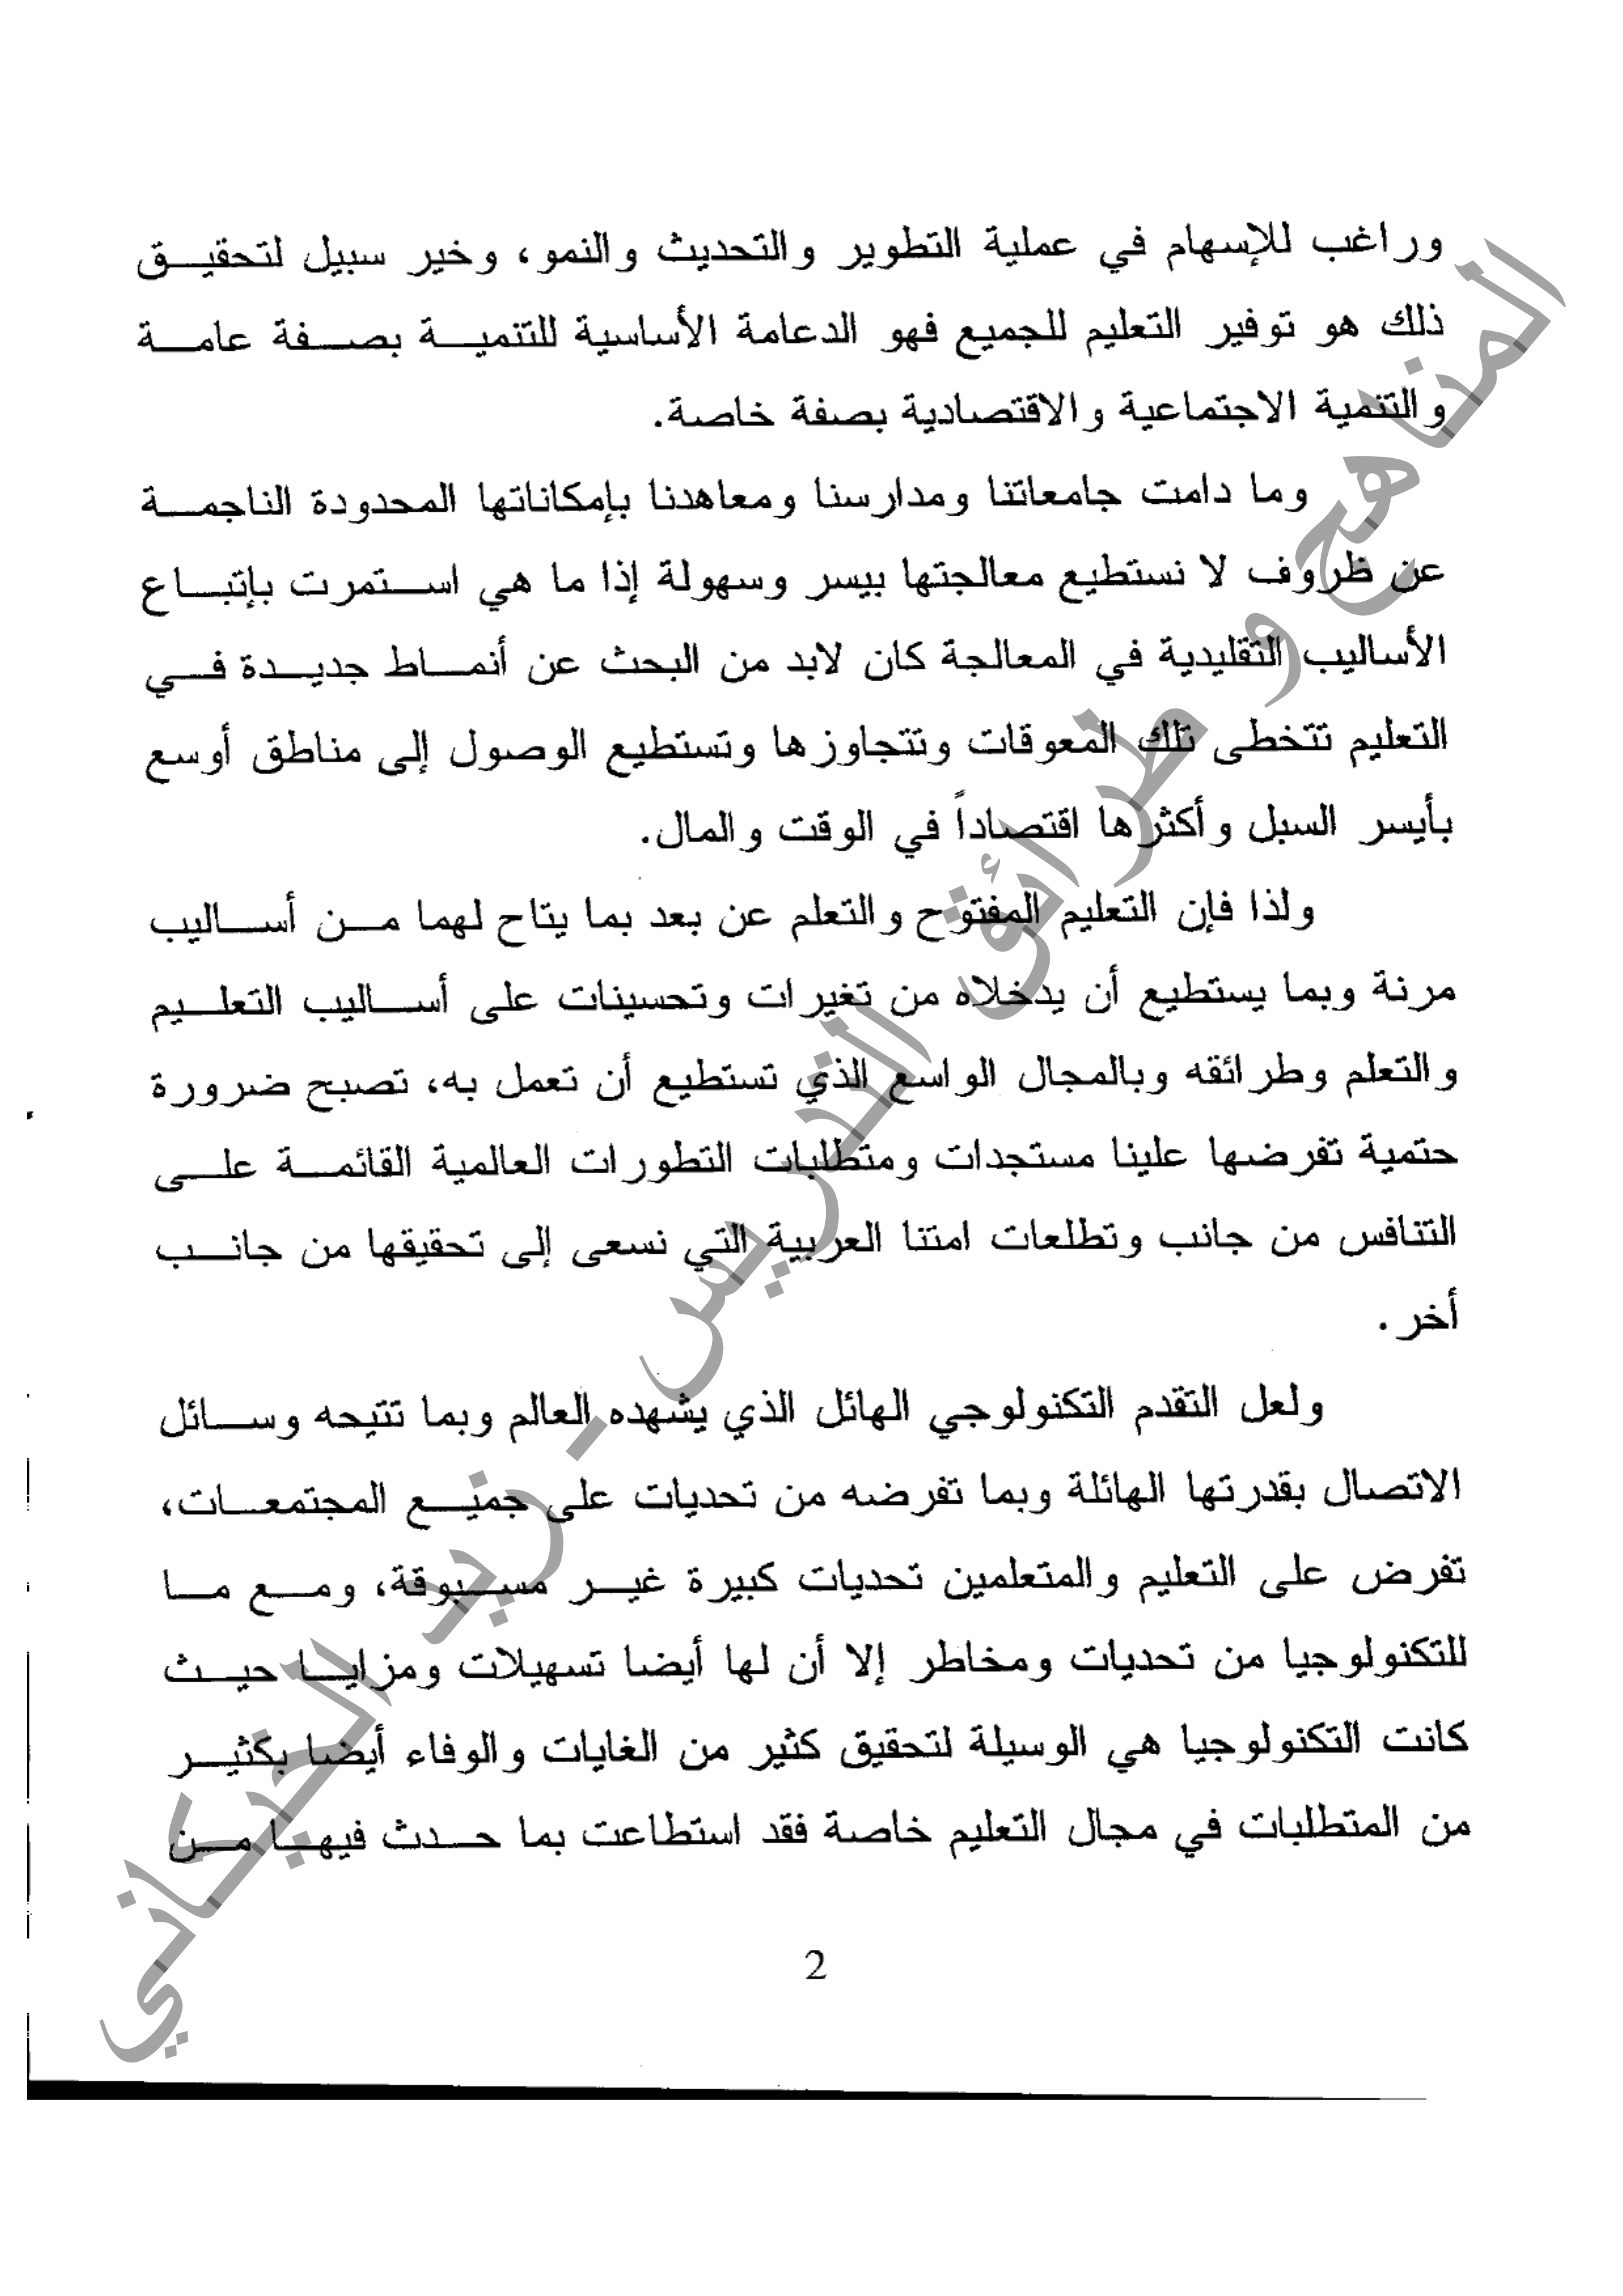 وراغب للإسهام في عملية التطوير والتحديث والنمو، وخير سبيل لتحقيق
ذلك هو توفير التعليم للجميع فهو الدعامة الأساسية للتنمية بصفة عامة
والتنمية الاجتماعية والاقتصادية بصفة خاصة.
وما دامت جامعاتنا ومدارسنا ومعاهدنا بإمكاناتها المحدودة الناجمة
عن ظروف لا نستطيع معالجتها بيسر وسهولة إذا ما هي استمرت بإتباع
الأساليب التقليدية في المعالجة كان لابد من البحث عن أنماط جديدة في
التعليم تتخطى تلك المعوقات وتتجاوزها وتستطيع الوصول إلى مناطق أوسع
بأيسر السبل وأكثرها اقتصاداً في الوقت والمال.
ولذا فإن التعليم المفتوح والتعلم عن بعد بما يتاح لهما من أساليب
مرنة وبما يستطيع أن يدخلاه من تغيرات وتحسينات على أساليب التعليم
والتعلم وطرائقه وبالمجال الواسع الذي تستطيع أن تعمل به، تصبح ضرورة
حتمية تفرضها علينا مستجدات ومتطلبات التطورات العالمية القائمة على
التنافس من جانب وتطلعات امتنا العربية التي نسعى إلى تحقيقها من جانب
أخر.
ولعل التقدم التكنولوجي الهائل الذي يشهده العالم وبما تتيحه وسائل
الاتصال بقدرتها الهائلة وبما تفرضه من تحديات على جميع المجتمعات،
تفرض على التعليم والمتعلمين تحديات كبيرة غير مسبوقة، ومع ما
للتكنولوجيا من تحديات ومخاطر إلا أن لها أيضا تسهيلات ومزايا حيث
كانت التكنولوجيا هي الوسيلة لتحقيق كثير من الغايات والوفاء أيضا بكثير
من المتطلبات في مجال التعليم خاصة فقد استطاعت بما حدث فيها من
2
المناهج و طرائق التدريس - زيد الخيكاني